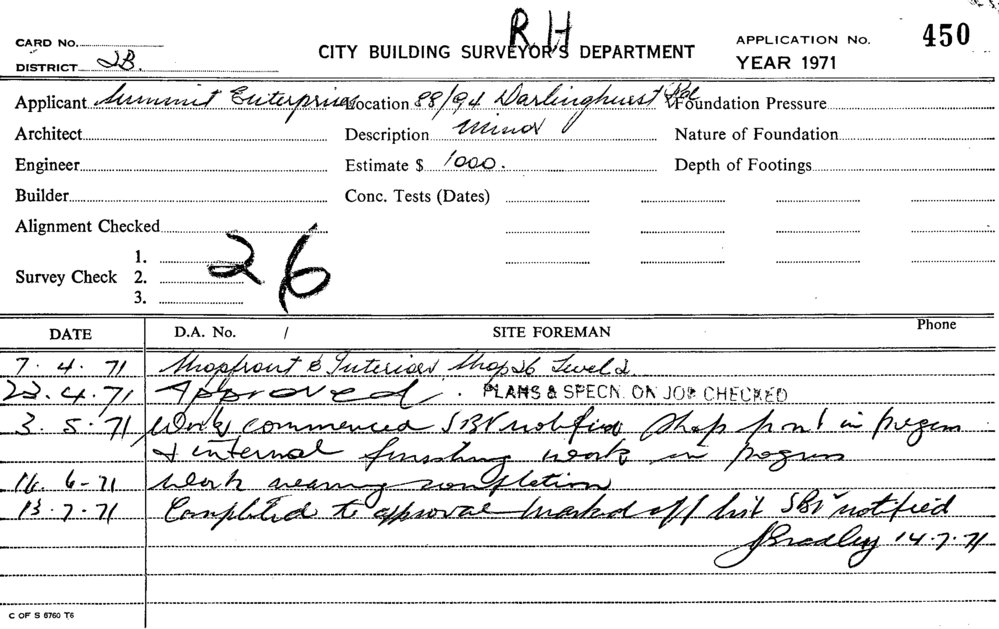 R H
CARD No.
CITY BUILDING SURVEYOR'S DEPARTMENT
APPLICATION No. 450
DISTRICT 2B.
YEAR 1971
Applicant Summit Enterprises Location 88/94 Darlinghurst Rd Foundation Pressure
Architect Description Minor Nature of Foundation
Engineer Estimate $ 1000. Depth of Footings
Builder Conc. Tests (Dates)
Alignment Checked
Survey Check 1. 2. 3.
26
DATE D.A. No. / SITE FOREMAN Phone
7. 4. 71 Shopfront & Interior Shop 26 Level 2
22.4.71 Approved. PLANS & SPECN. ON JOB CHECKED
3.5.71 Work commenced SBI notified Shop front in progress
& internal finishing work in progress
16. 6-71 Work nearing completion
13.7.71 Completed to approval marked off list SBI notified
JBradley 14.7.71
C OF S 6760 T6